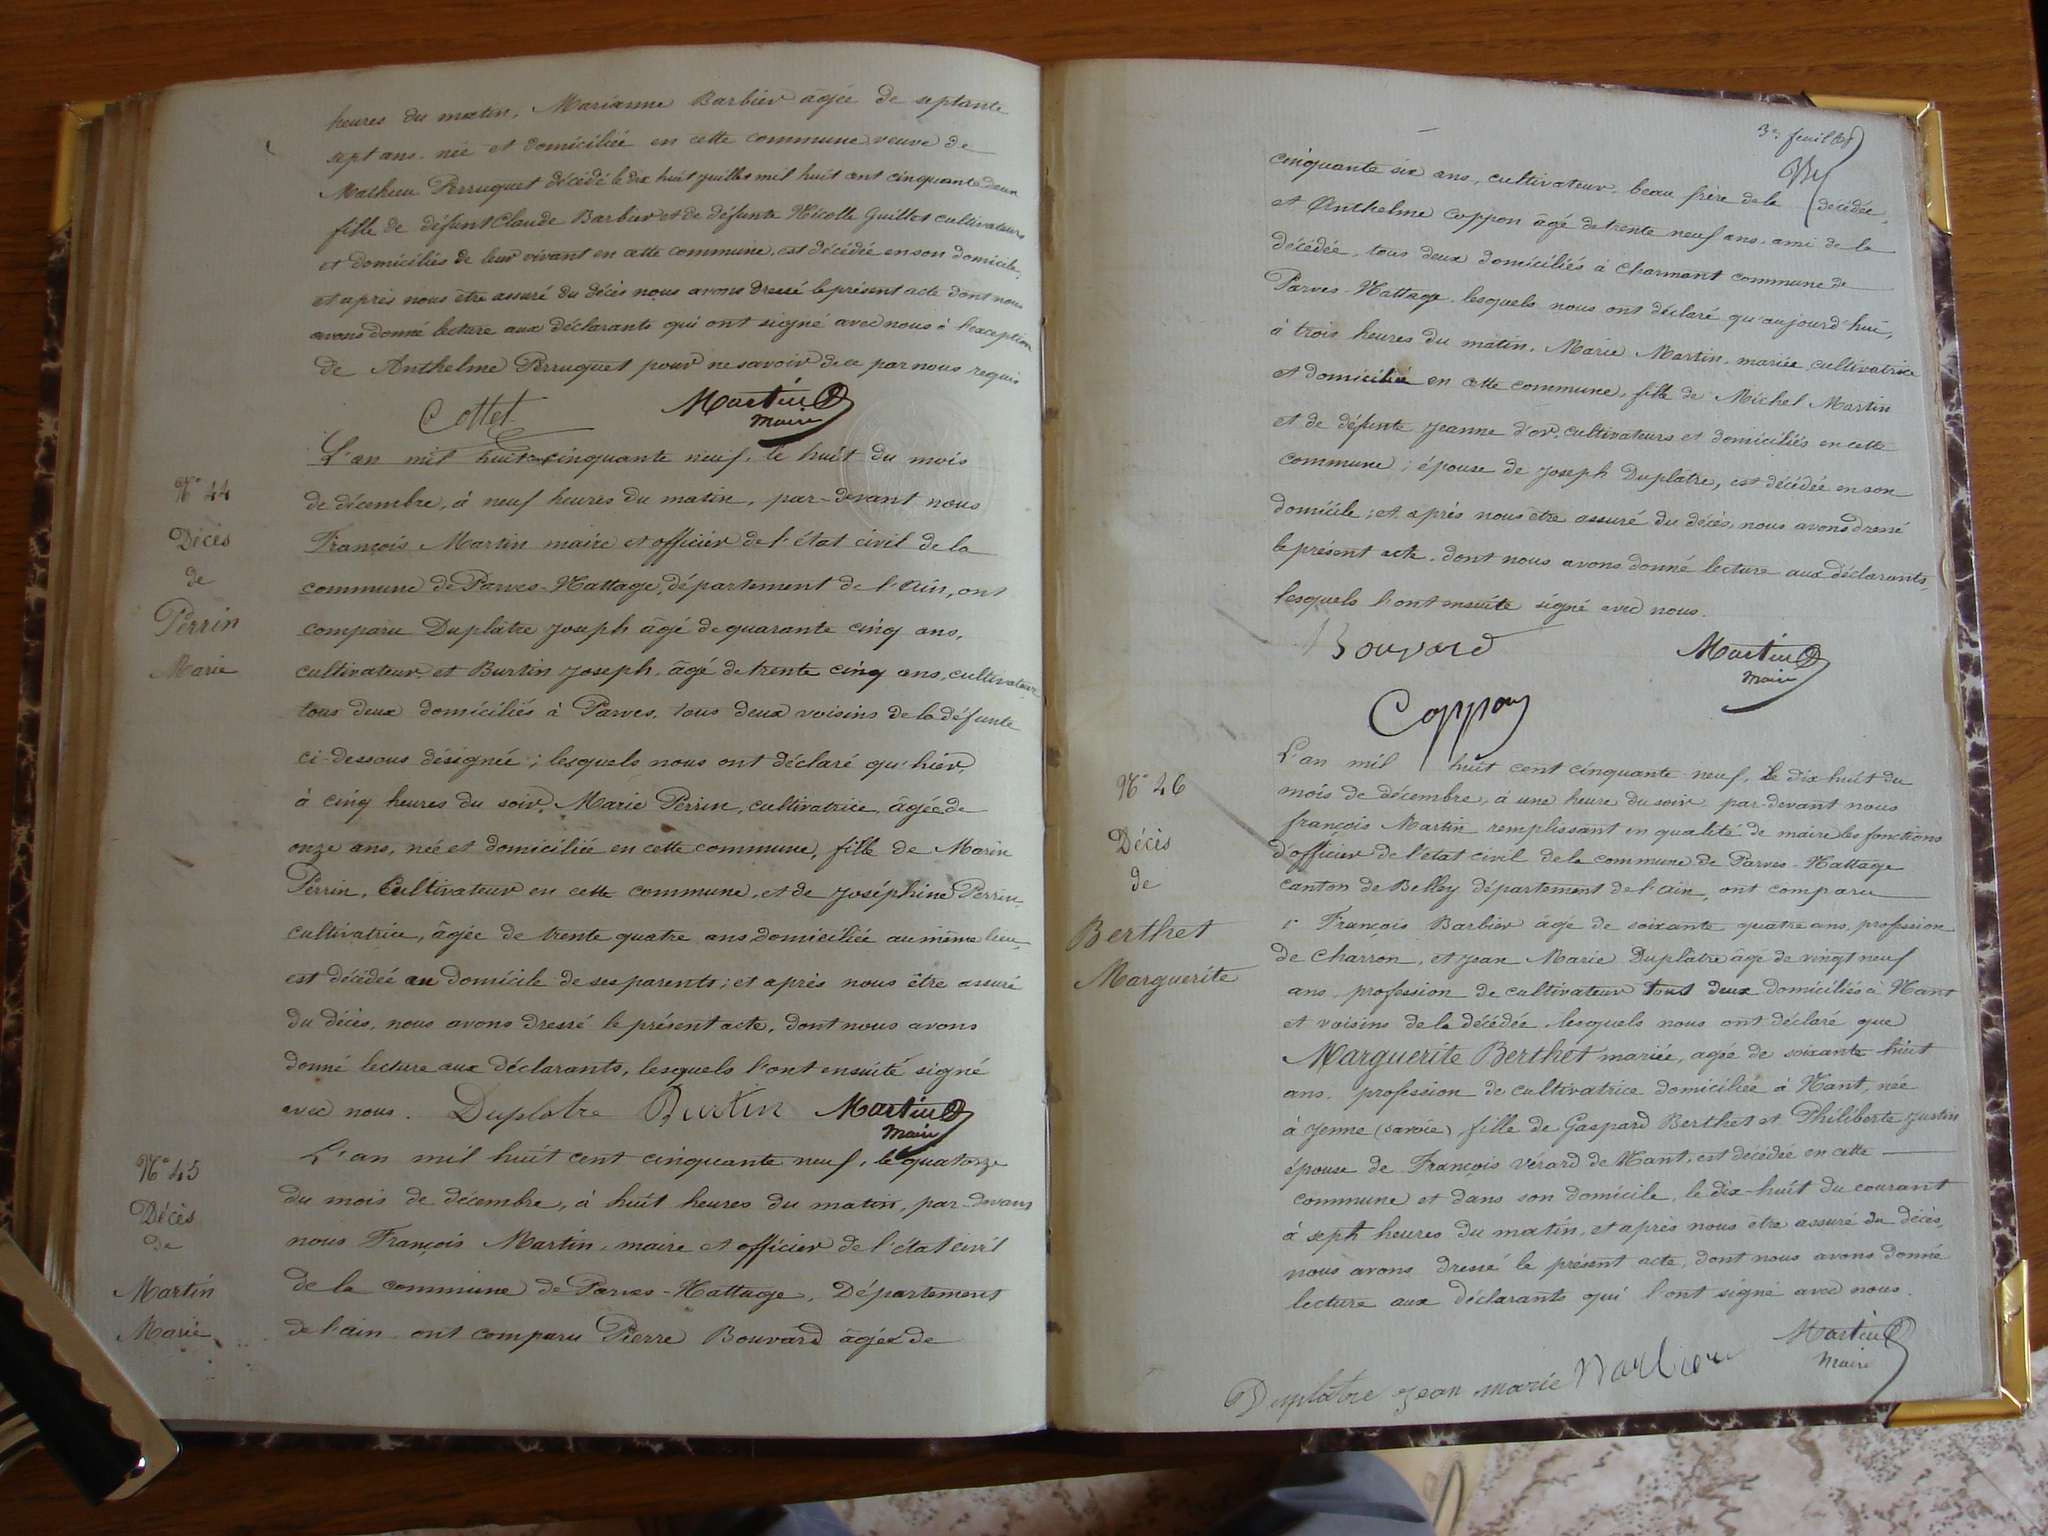 heures du matin, Marianne Barbier âgée de septante
sept ans. née et domiciliée en cette commune veuve de
Mathieu Perruquet décédé le dix huit juillet mil huit cent cinquante deux
fille de défunt Claude Barbier et de défunte Nicolle Guillot cultivateurs
et domiciliés de leur vivant en cette commune, est décédée en son domicile,
et après nous être assuré du décès nous avons dressé le présent acte dont nous
avons donné lecture aux déclarants qui ont signé avec nous à l'exception
de Anthelme Perruquet pour ne savoir de ce par nous requis
Cottet Martin
maire
N° 44
Décès
de
Perrin
Marie
L'an mil huit cinquante neuf, le huit du mois
de décembre, à neuf heures du matin, par-devant nous
François Martin maire et officier de l'état civil de la
commune de Parves-Nattage, département de l'Ain, ont
comparu Duplâtre Joseph âgé de quarante cinq ans,
cultivateur et Burtin Joseph, âgé de trente cinq ans, cultivateur
tous deux domiciliés à Parves, tous deux voisins de la défunte
ci-dessous désignée ; lesquels nous ont déclaré qu'hier,
à cinq heures du soir, Marie Perrin, cultivatrice, âgée de
onze ans, née et domiciliée en cette commune, fille de Marin
Perrin, Cultivateur en cette commune, et de Joséphine Perrin,
cultivatrice, âgée de trente quatre ans domiciliée au même lieu,
est décédée au domicile de ses parents ; et après nous être assuré
du décès, nous avons dressé le présent acte, dont nous avons
donné lecture aux déclarants, lesquels l'ont ensuite signé
avec nous. Duplatre Burtin Martin
maire
N° 45
Décès
de
Martin
Marie
L'an mil huit cent cinquante neuf, le quatorze
du mois de décembre, à huit heures du matin, par-devant
nous François Martin, maire et officier de l'état civil
de la commune de Parves-Nattage, Département
de l'ain ont comparu Pierre Bouvard âgé de
3e feuillet
cinquante six ans, cultivateur, beau frère de la décédée,
et Anthelme Coppon âgé de trente neuf ans. ami de la
décédée, tous deux domiciliés à Charmont commune de
Parves-Nattage, lesquels nous ont déclaré qu'aujourd'hui,
à trois heures du matin, Marie Martin, mariée cultivatrice
et domiciliée en cette commune, fille de Michel Martin
et de défunte Jeanne d'or, cultivateurs et domiciliés en cette
commune ; épouse de Joseph Duplâtre, est décédée en son
domicile ; et après nous être assuré du décès, nous avons dressé
le présent acte, dont nous avons donné lecture aux déclarants,
lesquels l'ont ensuite signé avec nous.
Bouvard Martin
maire
Coppon
N° 46
Décès
de
Berthet
Marguerite
L'an mil huit cent cinquante neuf, le dix huit du
mois de décembre, à une heure du soir par-devant nous
françois Martin remplissant en qualité de maire les fonctions
d'officier de l'état civil de la commune de Parves-Nattage
canton de Belley département de l'ain, ont comparu
1° François Barbier âgé de soixante quatre ans, profession
de charron, et Jean Marie Duplâtre âgé de vingt neuf
ans, profession de cultivateur tous deux domiciliés à Nant
et voisins de la décédée lesquels nous ont déclaré que
Marguerite Berthet mariée, agée de soixante huit
ans, profession de cultivatrice domiciliée à Nant, née
à Yenne (savoie) fille de Gaspard Berthet et Philiberte Justin
épouse de François Vérard de Nant, est décédée en cette
commune et dans son domicile, le dix-huit du courant
à sept heures du matin, et après nous être assuré du décès,
nous avons dressé le présent acte, dont nous avons donné
lecture aux déclarants qui l'ont signé avec nous.
Martin
maire
Duplâtre Jean marie Barbier